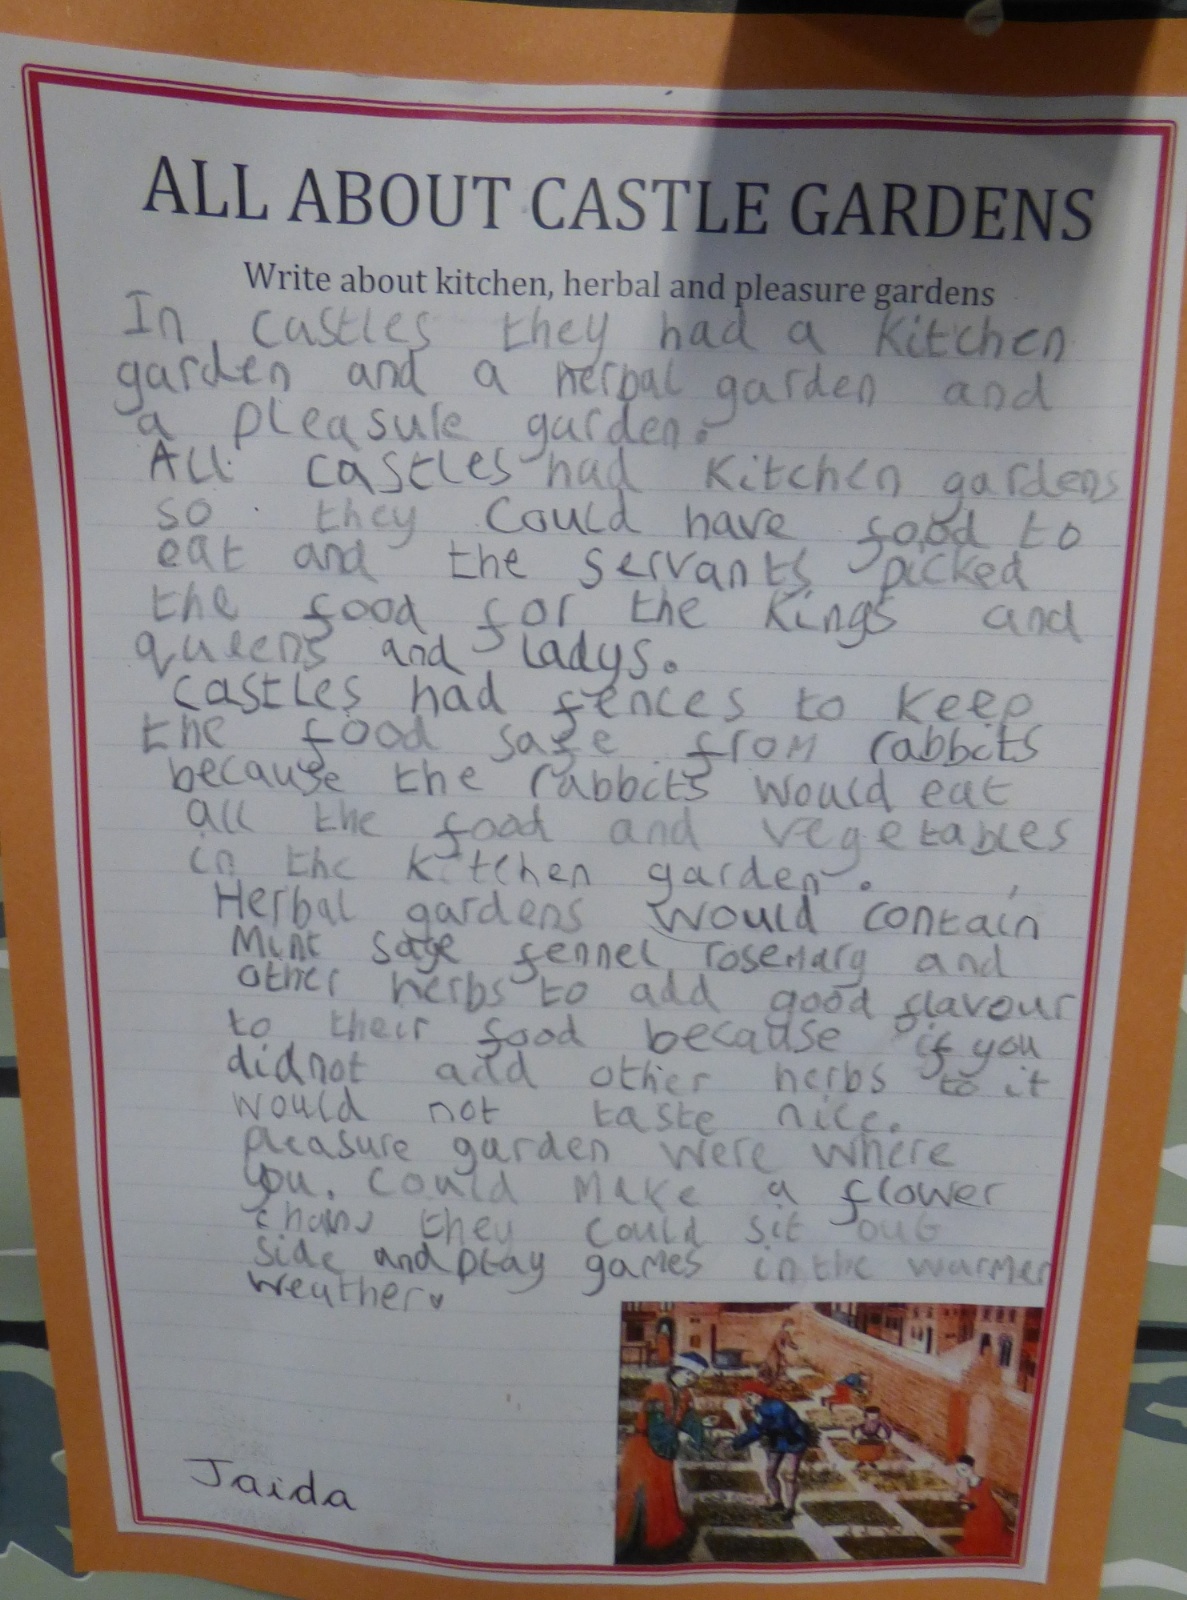 ALL ABOUT CASTLE GARDENS
Write about kitchen, herbal and pleasure gardens
In castles they had a kitchen
garden and a herbal garden and
a pleasure garden.
All castles had kitchen gardens
so they could have food to
eat and the servants picked
the food for the kings and
queens and ladys.
castles had fences to keep
the food safe from rabbits
because the rabbits would eat
all the food and vegetables
in the kitchen garden.
Herbal gardens would contain
Mint sage fennel rosemary and
other herbs to add good flavour
to their food because if you
didnot add other herbs to it
would not taste nice.
pleasure garden were where
you. could make a flower
chains they could sit out
side and play games in the warmer
weather
Jaida